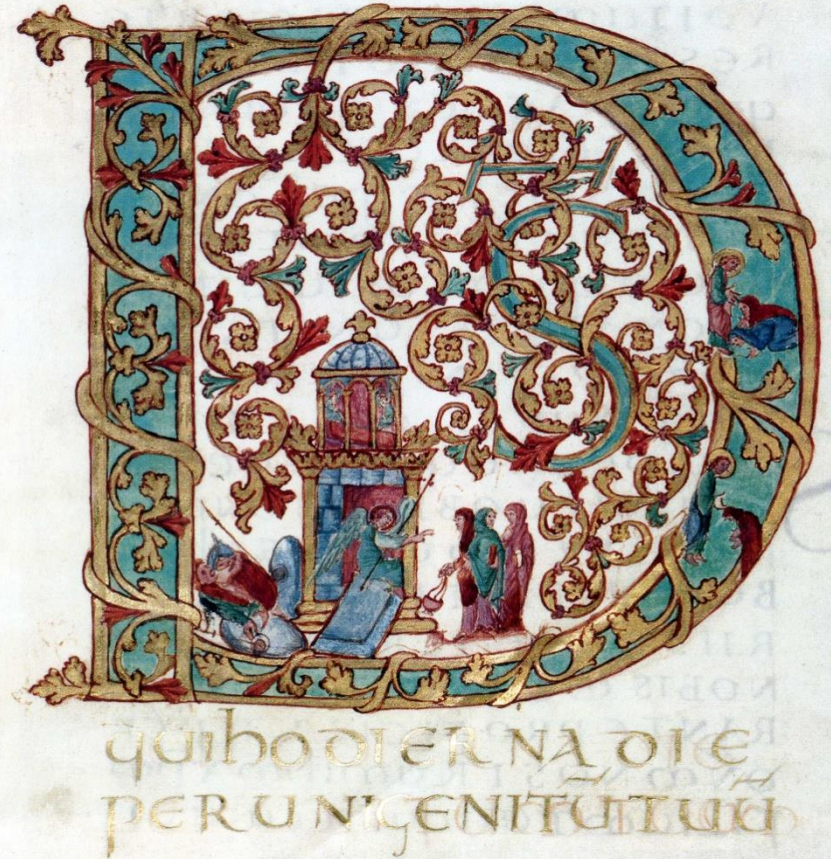 DS
quihodiERNA DIE
PERUNIGENITUTUU